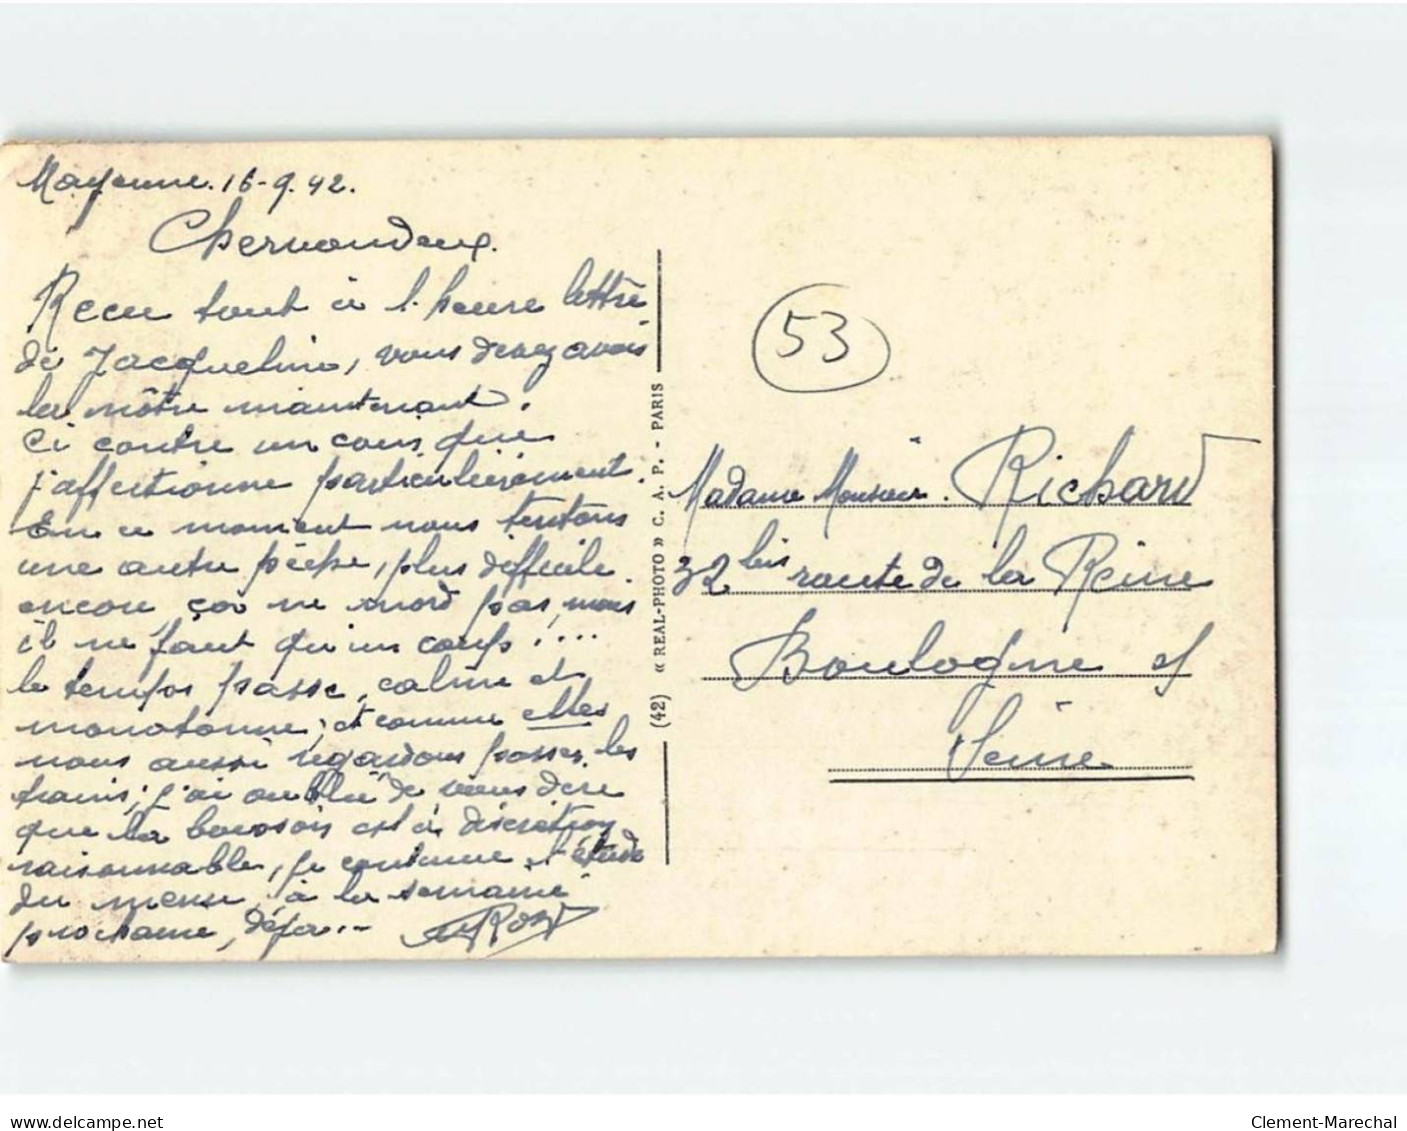 Mayenne. 16-9.42.
Chervondeux.
Recu tout à l'heure lettre
de Jacqueline, vous devez avoir
la nôtre maintenant.
Ci contre un coin que
j'affectionne particulièrement.
En ce moment nous tentons
une autre pêche, plus difficile
encore, ça ne mord pas, mais
il ne faut qu'un coup!....
le temps passe, calme et
monotonne; et comme elles
nous aussi regardons passer les
trains; j'ai oublié de vous dire
que la boisson est à discrétion
raisonnable, je continue l'étude
du menu, à la semaine
prochaine, déjà..
53
Madame Monsieur. Richard
32 bis route de la Reine
Boulogne s/
Seine
(42) « REAL-PHOTO » C. A. P. - PARIS
www.delcampe.net
Clement-Marechal